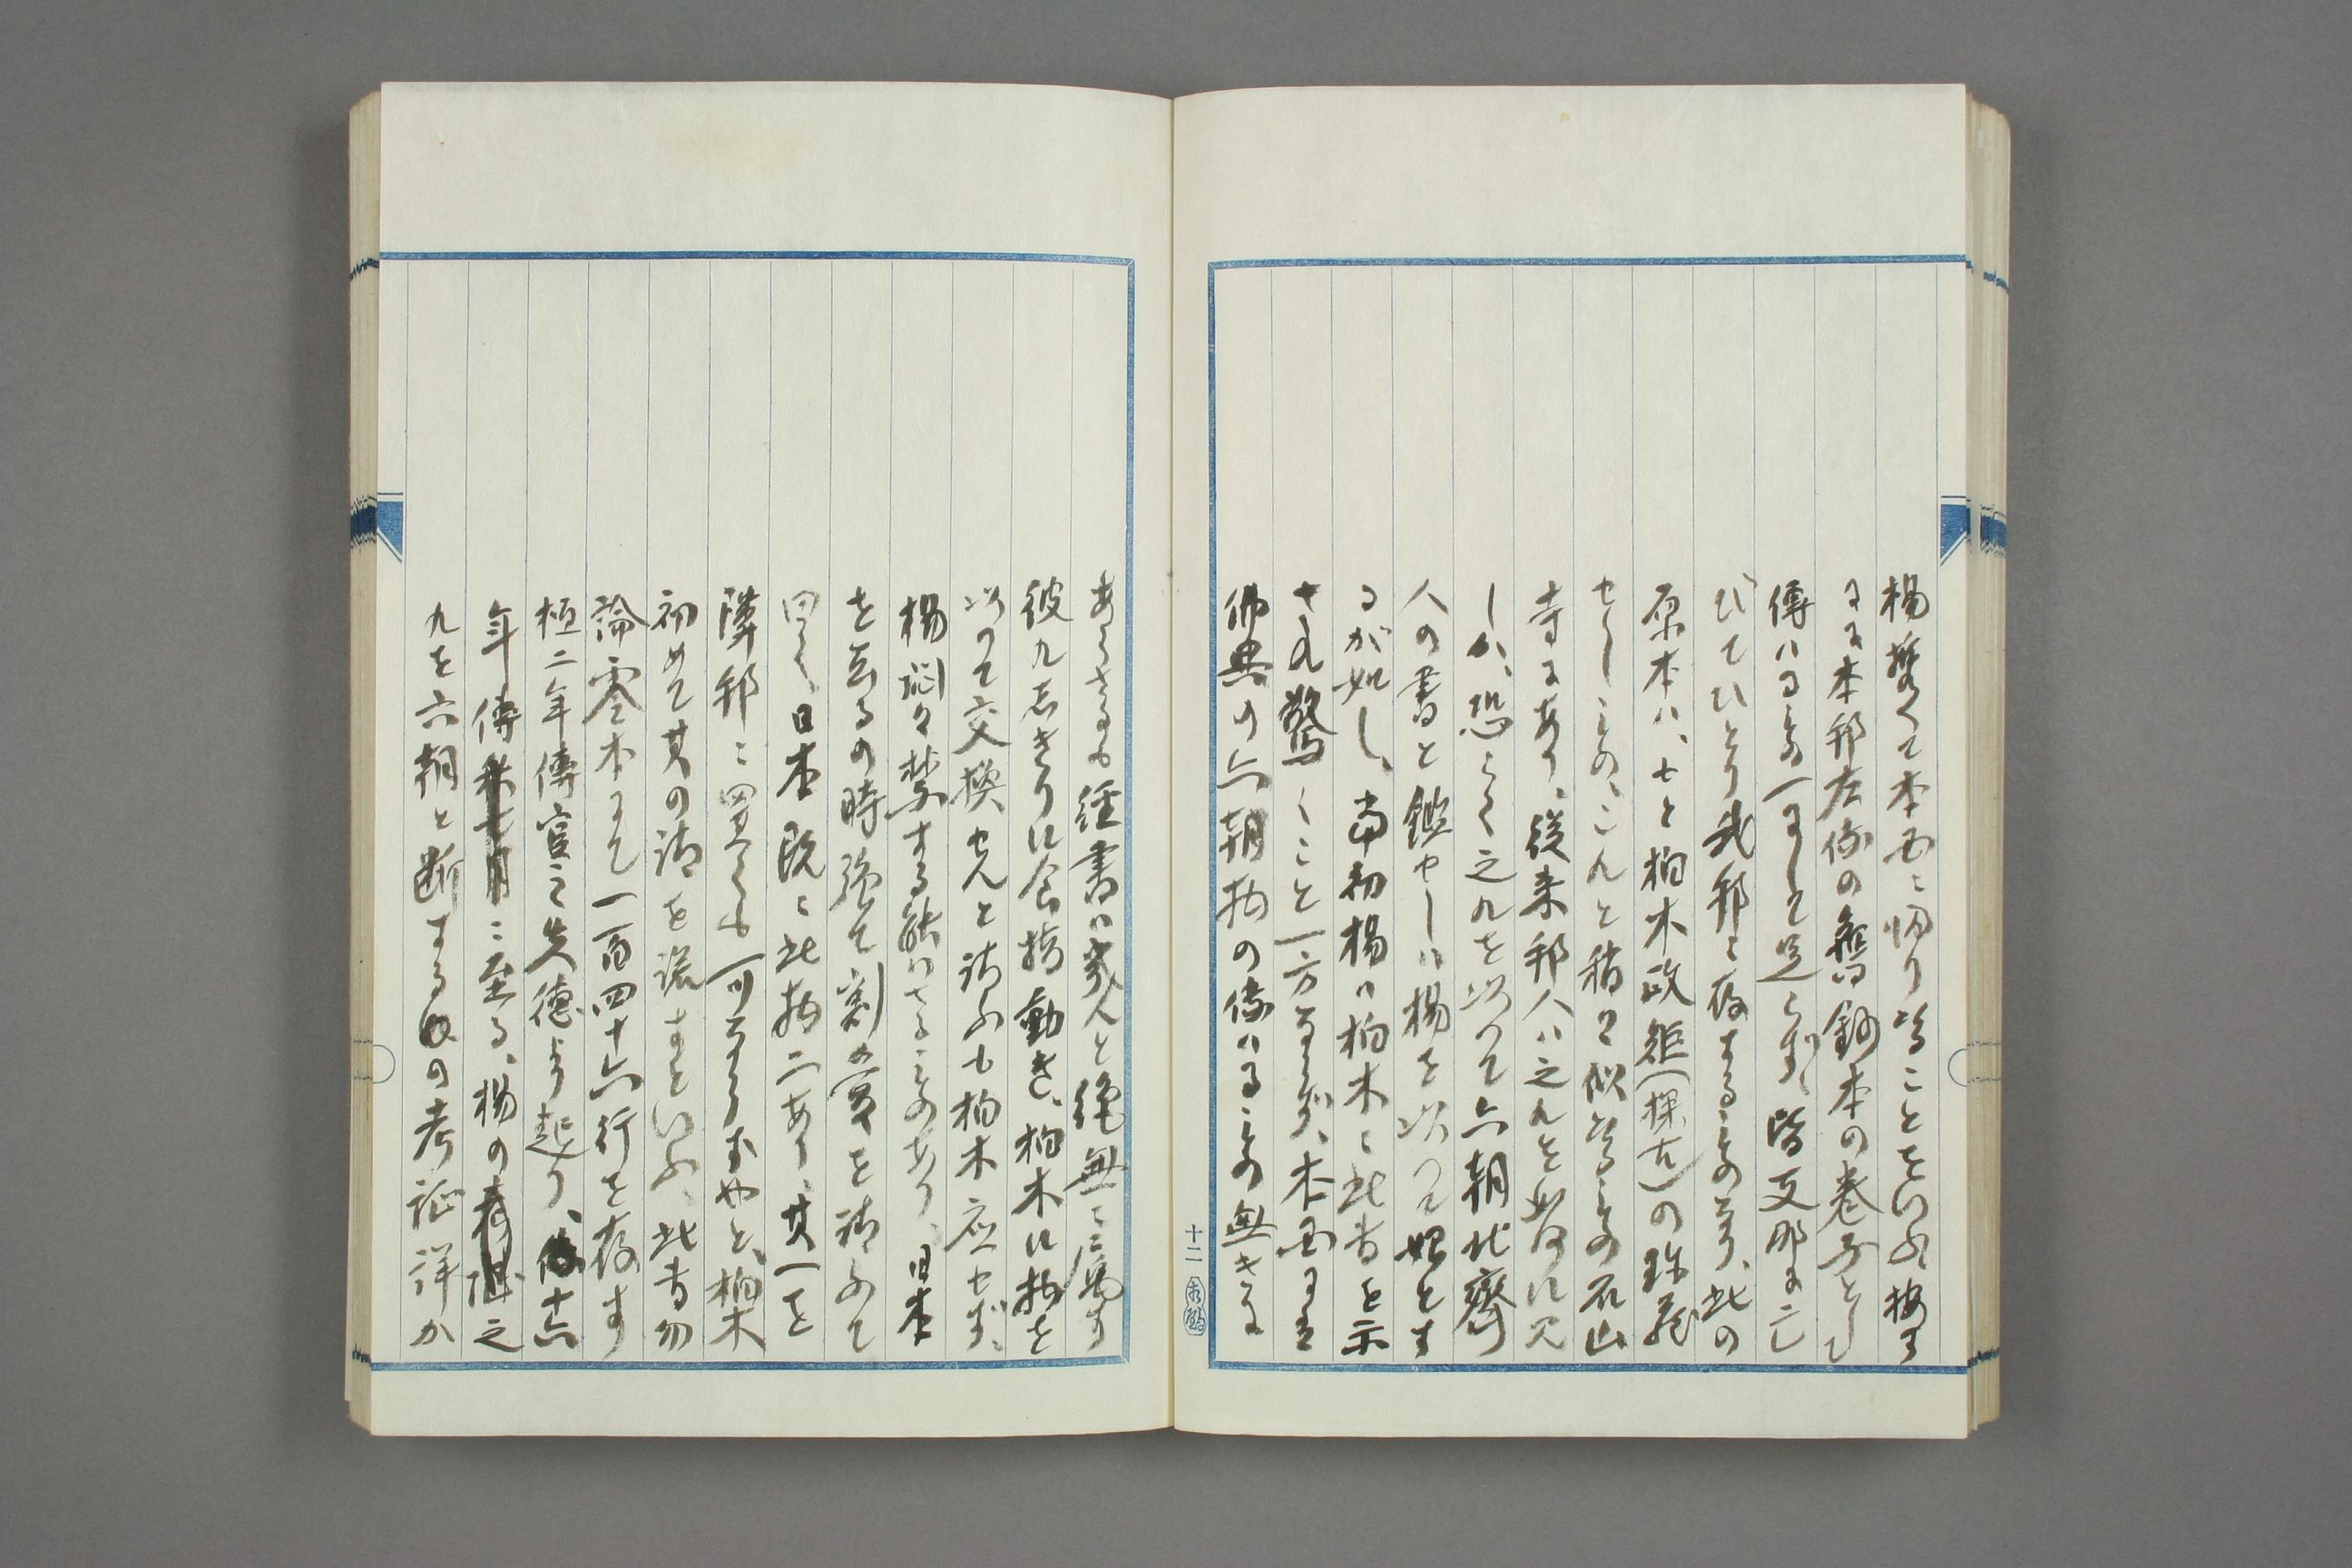 楊驚いて本国に帰りなることをいふ、按す
るに本邦左係の舊鈔本の巻子として
傳はるもの一にして足らず、皆支那に亡
びてひとり我邦に存するものなり、此の
原本は、もと柏木政矩(探古)の珍藏
せしもの、これと稍々似たるもの石山
寺にあり、従来邦人は之れを
しか、恐らく之れを以つて六朝北齊
人の書と鑑せしは楊を以つて始とす
るが如し、当初楊は柏木に此書を示
され驚くこと一方ならず、本国には
佛典の六朝抄の傳はるもの無きに
あらざるも經書は殆んと絶無に属す
彼れしきりに食指動き、柏木に物を
以つて交換せんと請ふも柏木応せず、
楊悩々禁ずる能はざるものあり、日本
を去るの時強て割愛を請ふて
曰く、日本既に此抄二あり、其一を
隣邦に置くも可ならずやと、柏木
初めて其の請を諾すといふ、此書
論零本にて一百四十六行を存す
桓二年傳宣之失德より起り、十六
年傳に至る、楊の之
れを六朝と断ずるの考証詳か
十二